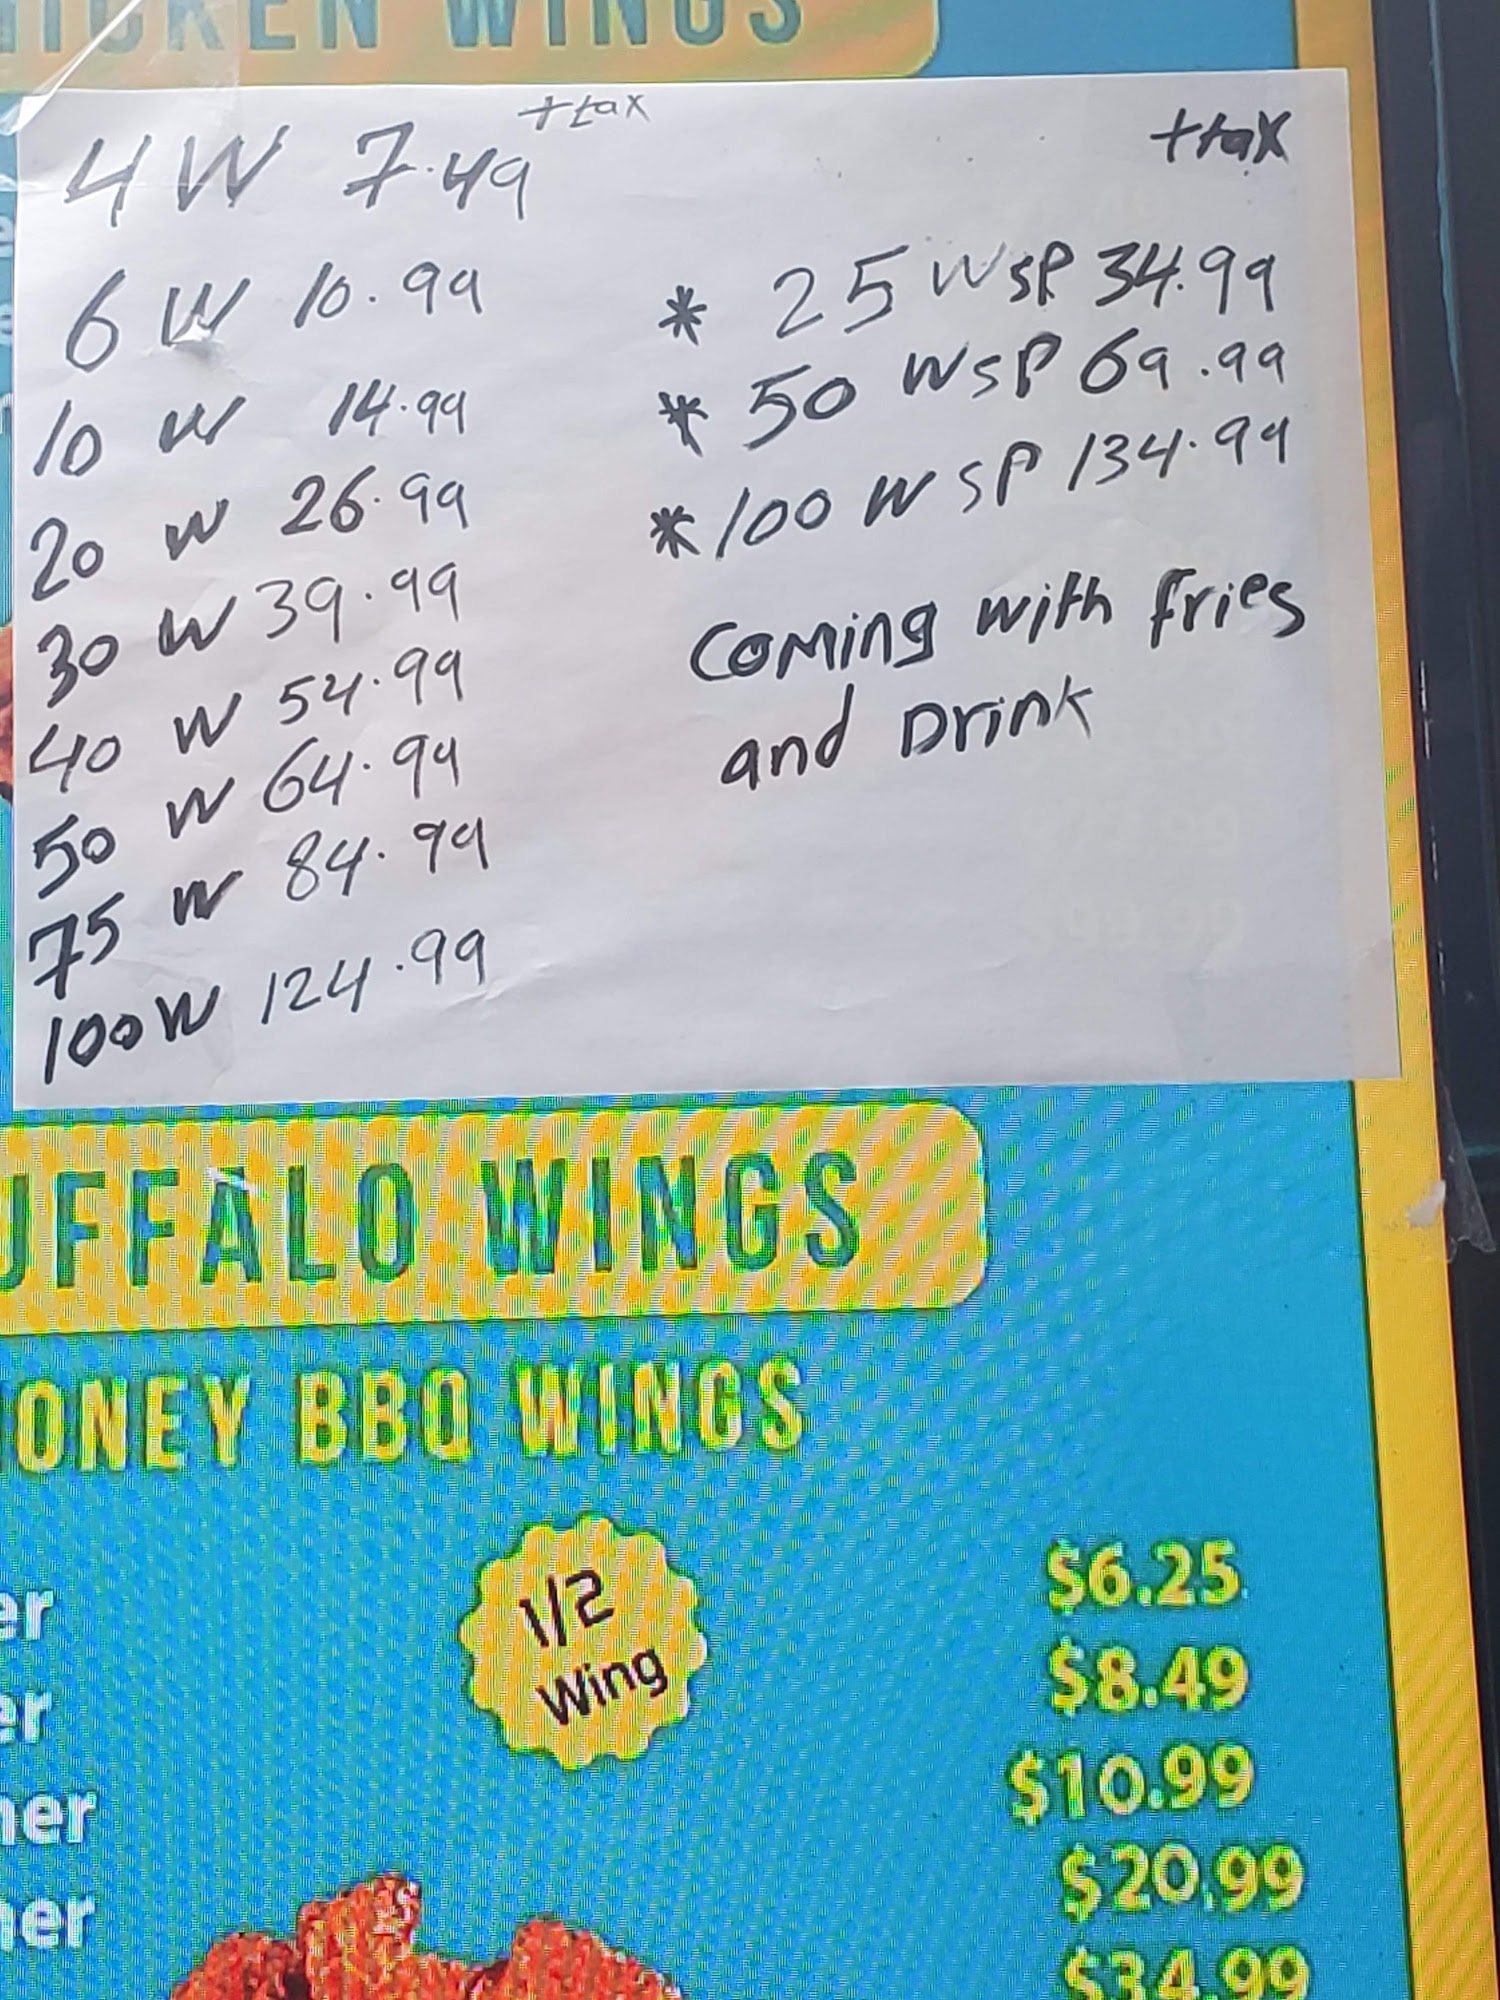 CHICKEN WINGS
4 W 7.49 +tax
6 W 10.99
10 W 14.99
20 W 26.99
30 W 39.99
40 W 54.99
50 W 64.99
75 W 84.99
100 W 124.99
+tax
* 25 W SP 34.99
* 50 W SP 69.99
* 100 W SP 134.99
Coming with fries
and Drink
UFFALO WINGS
ONEY BBQ WINGS
1/2
Wing
er $6.25
er $8.49
ner $10.99
er $20.99
$34.99